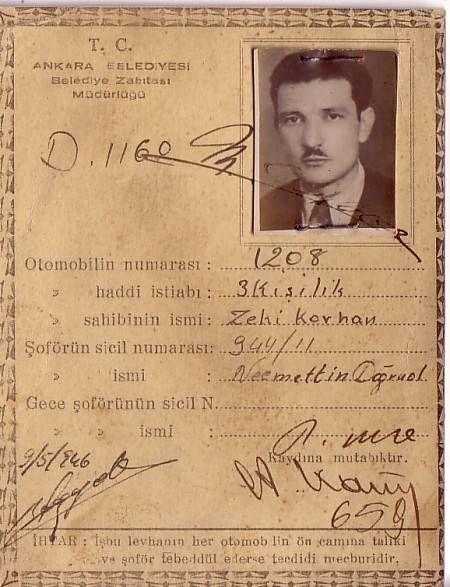 T. C.
ANKARA BELEDİYESİ
Belediye Zabıtası
Müdürlüğü
D. 1160
Otomobilin numarası : 1208
» haddi istiabı : 3 Kişilik
» sahibinin ismi : Zeki Korhan
Şoförün sicil numarası: 944/11
» ismi : Necmettin
Gece şoförünün sicil N.
» » ismi :
Kaydına mutabıktır.
9/5/946
659
İHTAR : İşbu levhanın her otomobilin ön camına taliki
ve şoför tebeddül ederse tecdidi mecburidir.